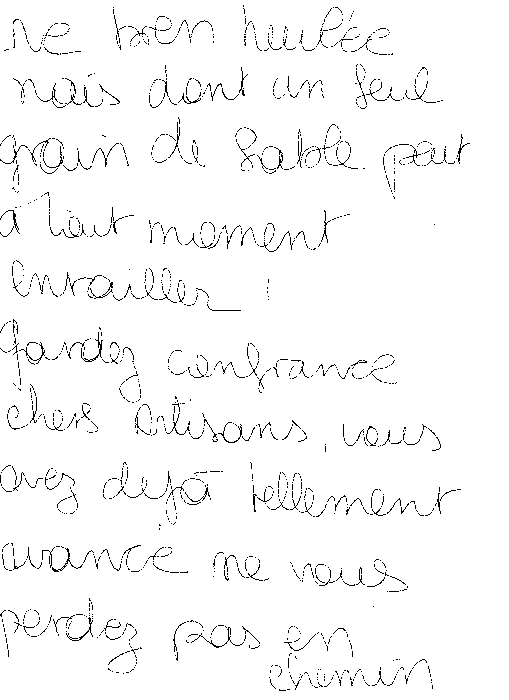 ne bien huilée
mais dont un seul
grain de sable peut
à tout moment
enrailler !
Gardez confiance
chers artisans, vous
avez déjà tellement
avancé ne vous
perdez pas en
chemin